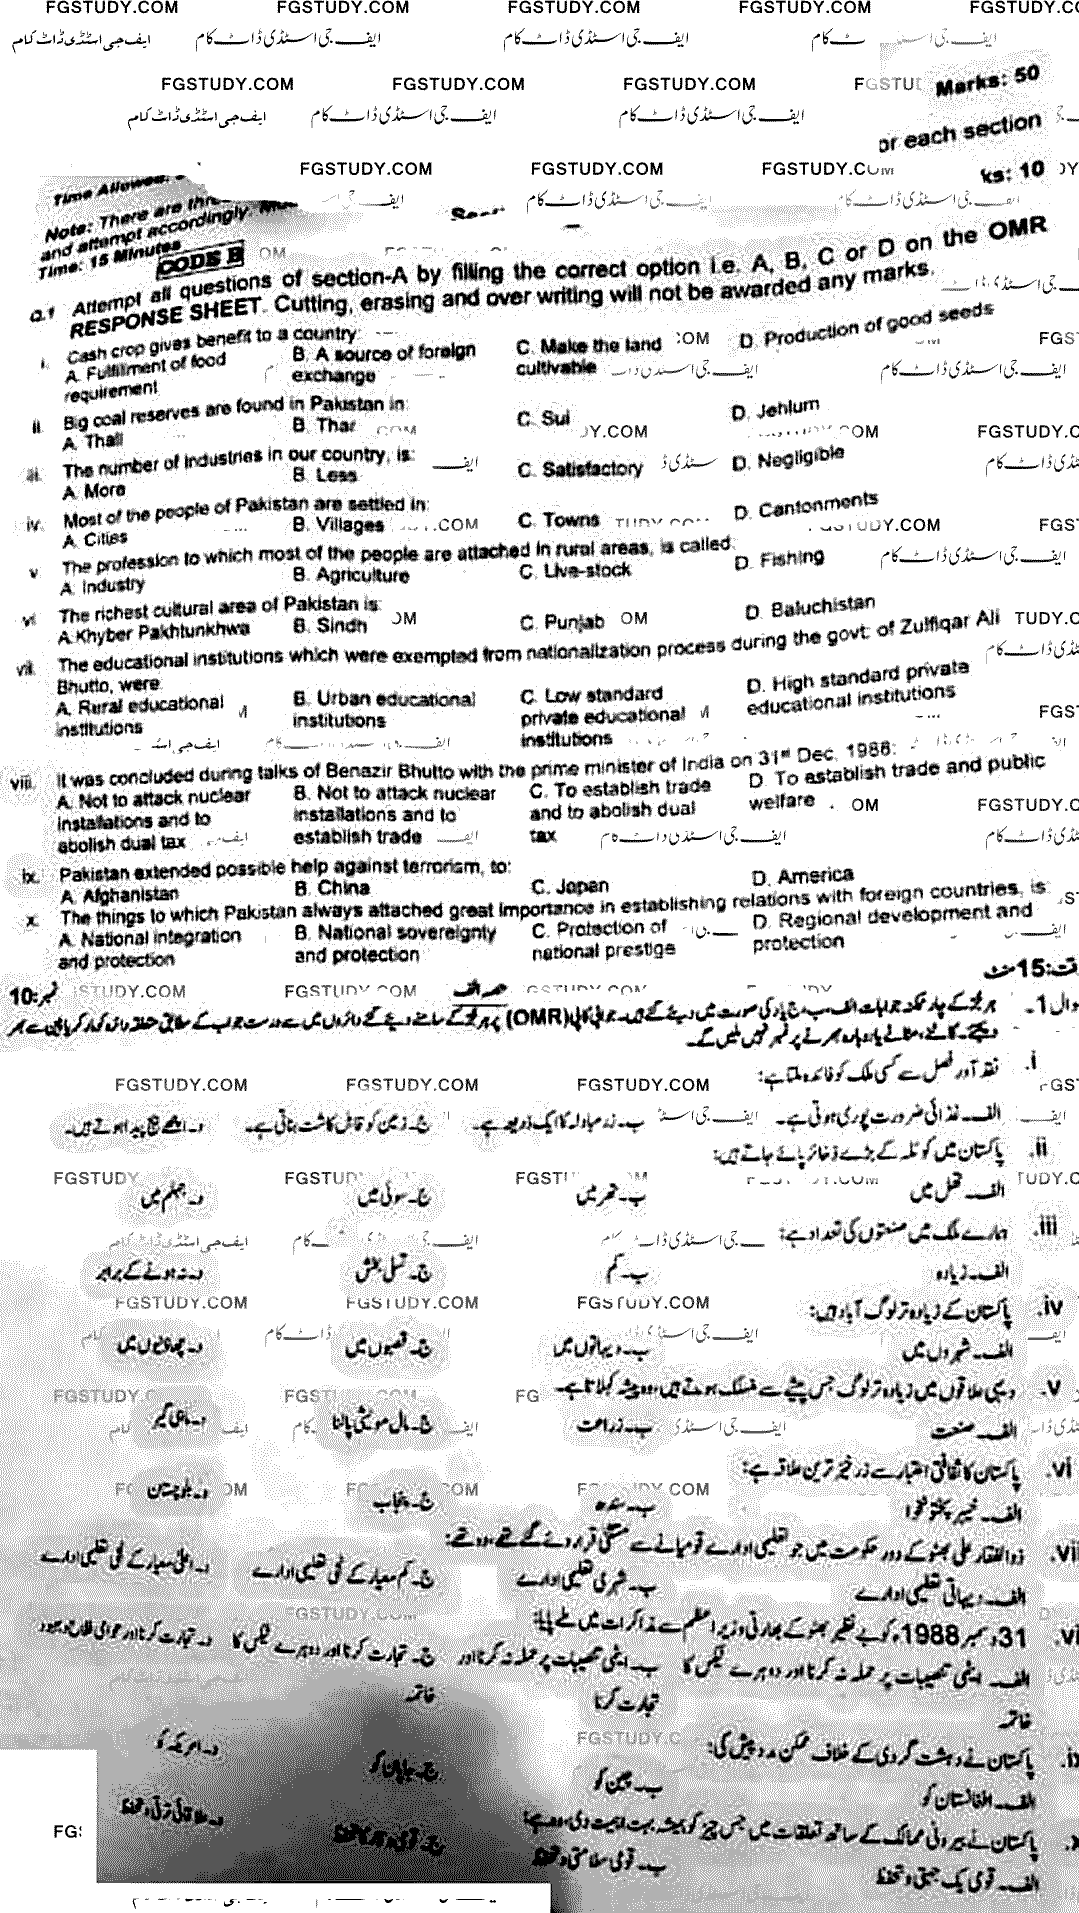 Marks: 50
or each section
ks: 10
Time Allowed:
Note: There are
and attempt accordingly.
Time: 15 Minutes
CODE B
Q.1 Attempt all questions of section-A by filling the correct option i.e. A, B, C or D on the OMR
RESPONSE SHEET. Cutting, erasing and over writing will not be awarded any marks.
i. Cash crop gives benefit to a country:
A. Fulfillment of food requirement B. A source of foreign exchange C. Make the land cultivable D. Production of good seeds
ii. Big coal reserves are found in Pakistan in:
A. Thall B. Thar C. Sui D. Jehlum
iii. The number of industries in our country, is:
A. More B. Less C. Satisfactory D. Negligible
iv. Most of the people of Pakistan are settled in:
A. Cities B. Villages C. Towns D. Cantonments
v. The profession to which most of the people are attached in rural areas, is called:
A. Industry B. Agriculture C. Live-stock D. Fishing
vi. The richest cultural area of Pakistan is:
A. Khyber Pakhtunkhwa B. Sindh C. Punjab D. Baluchistan
vii. The educational institutions which were exempted from nationalization process during the govt: of Zulfiqar Ali
Bhutto, were:
A. Rural educational institutions B. Urban educational institutions C. Low standard private educational institutions D. High standard private educational institutions
viii. It was concluded during talks of Benazir Bhutto with the prime minister of India on 31st Dec, 1988:
A. Not to attack nuclear installations and to abolish dual tax B. Not to attack nuclear installations and to establish trade C. To establish trade and to abolish dual tax D. To establish trade and public welfare
ix. Pakistan extended possible help against terrorism, to:
A. Afghanistan B. China C. Japan D. America
x. The things to which Pakistan always attached great importance in establishing relations with foreign countries, is:
A. National integration and protection B. National sovereignty and protection C. Protection of national prestige D. Regional development and protection
قت:15 منٹ
حصہ الف
نمبر:10
وال 1۔ ہر جزو کے چار ممکنہ جوابات الف، ب، ج یا د کی صورت میں دیئے گئے ہیں۔ جوابی کاپی (OMR) پر ہر جزو کے سامنے دیئے گئے دائروں میں سے درست جواب کے مطابق متعلقہ دائرہ کو مارکر یا پین سے بھر
دیجئے۔ کاٹنے، مٹانے یا دوبارہ بھرنے پر نمبر نہیں ملیں گے۔
i. نقد آور فصل سے کسی ملک کو فائدہ ملتا ہے:
الف۔ غذائی ضرورت پوری ہوتی ہے۔ ب۔ زرمبادلہ کا ایک ذریعہ ہے۔ ج۔ زمین کو قابل کاشت بناتی ہے۔ د۔ اچھے بیج پیدا ہوتے ہیں۔
ii. پاکستان میں کوئلہ کے بڑے ذخائر پائے جاتے ہیں:
الف۔ تھل میں ب۔ تھر میں ج۔ سوئی میں د۔ جہلم میں
iii. ہمارے ملک میں صنعتوں کی تعداد ہے:
الف۔ زیادہ ب۔ کم ج۔ تسلی بخش د۔ نہ ہونے کے برابر
iv. پاکستان کے زیادہ تر لوگ آباد ہیں:
الف۔ شہروں میں ب۔ دیہاتوں میں ج۔ قصبوں میں د۔ چھاؤنیوں میں
v. دیہی علاقوں میں زیادہ تر لوگ جس پیشے سے منسلک ہوتے ہیں، وہ پیشہ کہلاتا ہے۔
الف۔ صنعت ب۔ زراعت ج۔ مال مویشی پالنا د۔ ماہی گیر
vi. پاکستان کا ثقافتی اعتبار سے زرخیز ترین علاقہ ہے:
الف۔ خیبر پختونخوا ب۔ سندھ ج۔ پنجاب د۔ بلوچستان
vii ذوالفقار علی بھٹو کے دور حکومت میں جو تعلیمی ادارے قومیانے سے مستثنیٰ قرار دئے گئے تھے، وہ تھے:
الف۔ دیہاتی تعلیمی ادارے ب۔ شہری تعلیمی ادارے ج۔ کم معیار کے نجی تعلیمی ادارے د۔ اعلیٰ معیار کے نجی تعلیمی ادارے
31 دسمبر 1988ء کو بے نظیر بھٹو کے بھارتی وزیراعظم سے مذاکرات میں طے پایا:
الف۔ ایٹمی تنصیبات پر حملہ نہ کرنا اور دوہرے ٹیکس کا خاتمہ ب۔ ایٹمی تنصیبات پر حملہ نہ کرنا اور تجارت کرنا ج۔ تجارت کرنا اور دوہرے ٹیکس کا خاتمہ د۔ تجارت کرنا اور عوامی فلاح و بہبود
پاکستان نے دہشت گردی کے خلاف ممکن مدد پیش کی:
الف۔ افغانستان کو ب۔ چین کو ج۔ جاپان کو د۔ امریکہ کو
پاکستان نے بیرونی ممالک کے ساتھ تعلقات میں جس چیز کو ہمیشہ بہت اہمیت دی، وہ ہے:
الف۔ قومی یک جہتی و تحفظ ب۔ قومی سلامتی و تحفظ د۔ علاقائی ترقی و تحفظ
FGSTUDY.COM
ایف جی اسٹڈی ڈاٹ کام